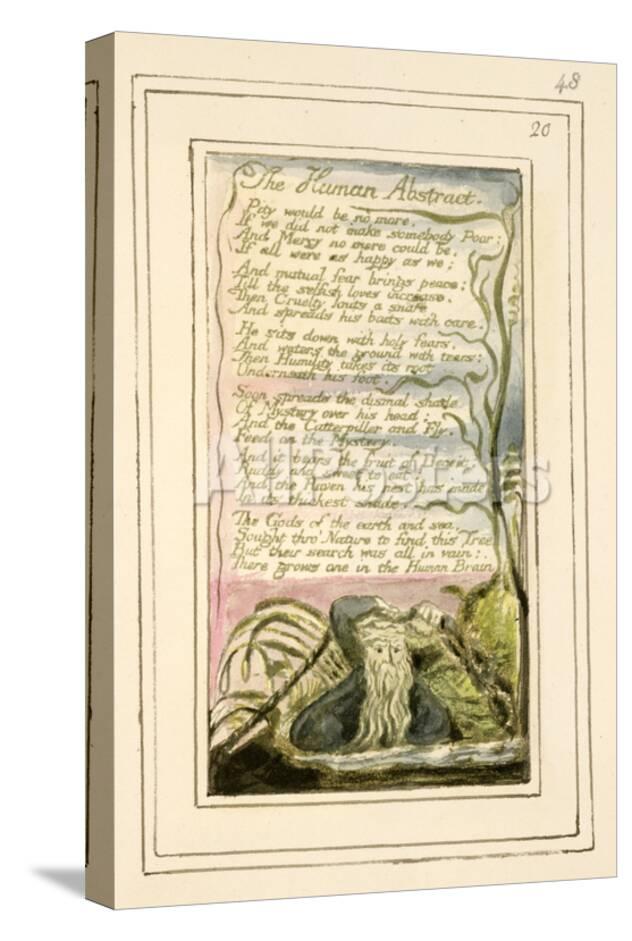 48
20
The Human Abstract.
Pity would be no more,
If we did not make somebody Poor:
And Mercy no more could be,
If all were as happy as we;
And mutual fear brings peace:
Till the selfish loves increase.
Then Cruelty knits a snare,
And spreads his baits with care.
He sits down with holy fears,
And waters the ground with tears:
Then Humility takes its root
Underneath his foot.
Soon spreads the dismal shade
Of Mystery over his head;
And the Catterpiller and Fly,
Feed on the Mystery.
And it bears the fruit of Deceit,
Ruddy and sweet to eat;
And the Raven his nest has made
In its thickest shade.
The Gods of the earth and sea,
Sought thro' Nature to find this Tree
But their search was all in vain:
There grows one in the Human Brain